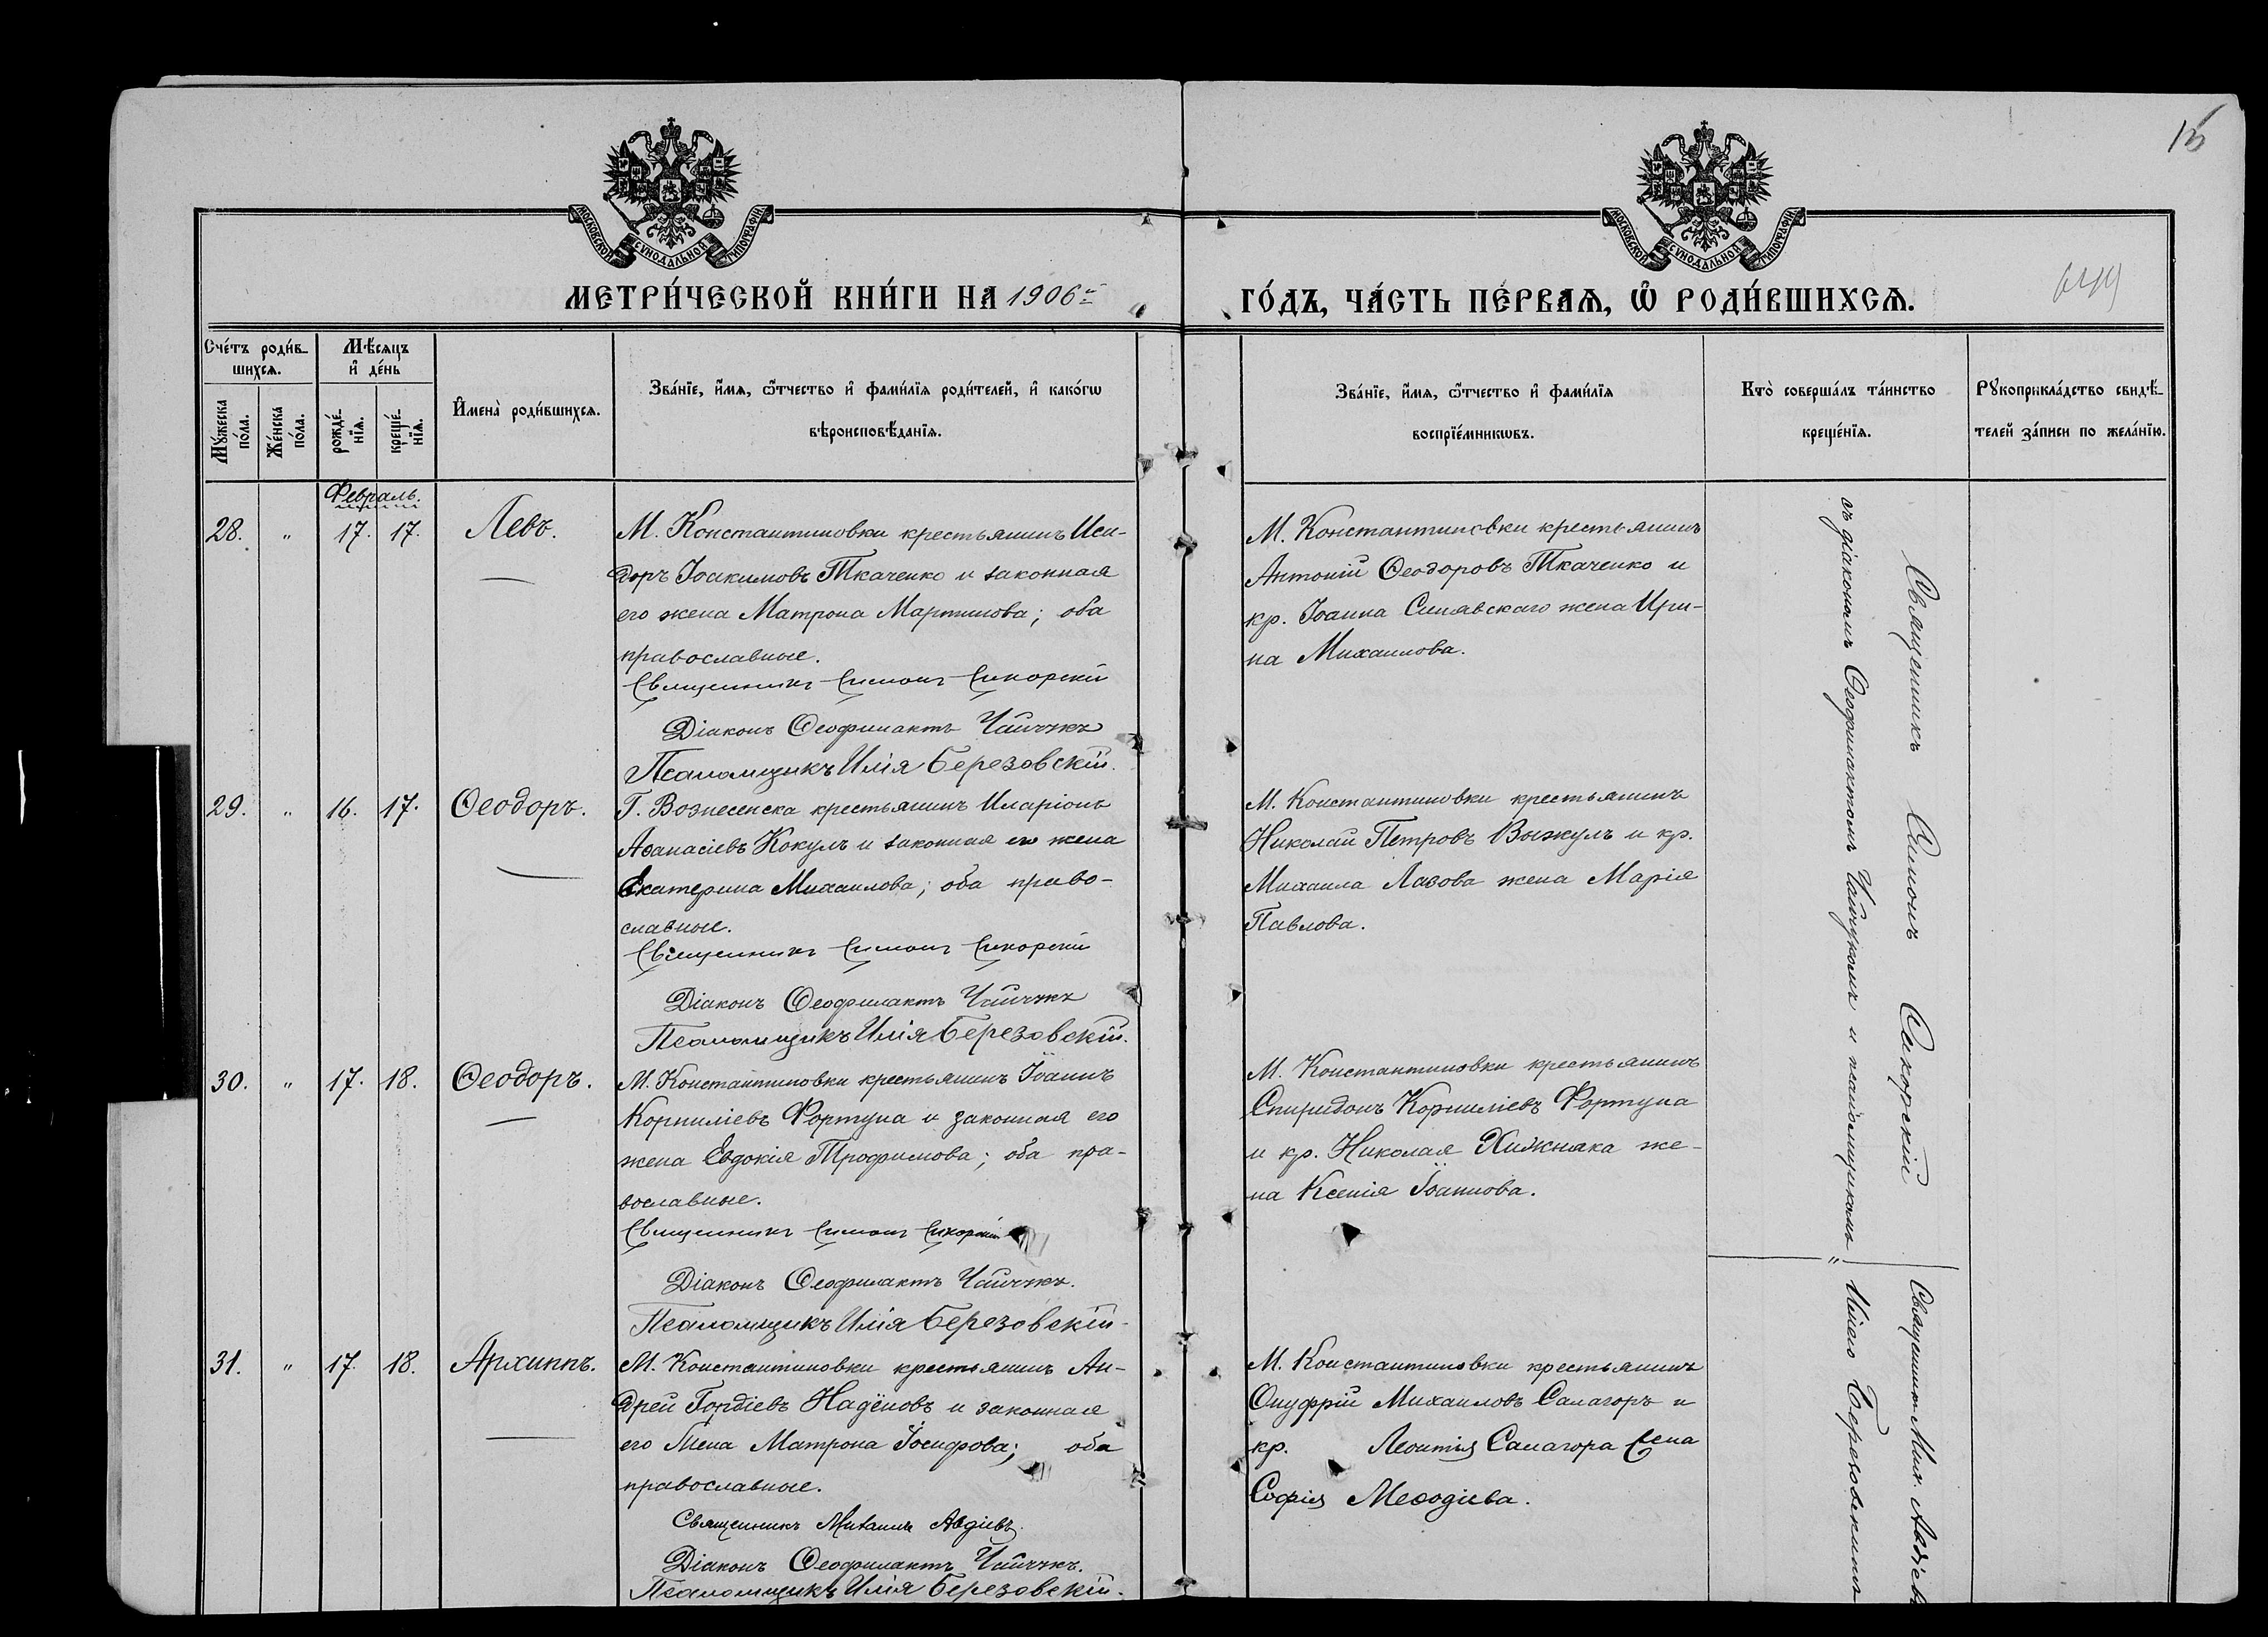 15
МОСКОВСКОЙ СѴНОДАЛЬНОЙ ТИПОГРАФІИ
МОСКОВСКОЙ СѴНОДАЛЬНОЙ ТИПОГРАФІИ
МЕТРИ́ЧЕСКОЙ КНИ́ГИ НА 1906й
ГО́ДЪ, ЧА́СТЬ ПЕ́РВАѦ, Ѽ РОДИ́ВШИХСѦ.
Сче́тъ роди́в-
шихсѧ.
Мѣ́сѧцъ
и҆ де́нь
Мꙋ́жеска
по́ла.
Же́нска
по́ла.
рожде́-
нїѧ.
креще́-
нїѧ.
И҆мена̀ роди́вшихсѧ.
Зва́нїе, и҆́мѧ, ѻ҆́тчество и҆ фами́лїѧ роди́телей, и҆ како́гѡ
вѣроисповѣ́данїѧ.
Зва́нїе, и҆́мѧ, ѻ҆́тчество и҆ фами́лїѧ
воспрїе́мникѡвъ.
Кто̀ соверша́лъ та́инство
креще́нїѧ.
Рꙋкоприкла́дство свидѣ́-
телей за́писи по жела́нїю.
Февраль.
28. " 17. 17. Левъ.
М. Константиновки крестьянинъ Иси-
доръ Іоакимовъ Ткаченко и законная
его жена Матрона Мартинова; оба
православные.
Священникъ Симонъ Сикорскій
Діаконъ Ѳеофилактъ Чайчукъ
Псаломщикъ Илія Березовскій.
М. Константиновки крестьянинъ
Антоній Ѳеодоровъ Ткаченко и
кр. Іоанна Синявскаго жена Ири-
на Михаилова.
29. " 16. 17. Ѳеодоръ.
Г. Вознесенска крестьянинъ Иларіонъ
Аѳанасіевъ Кокулъ и законная его жена
Екатерина Михаилова; оба право-
славные.
Священникъ Симонъ Сикорскій
Діаконъ Ѳеофилактъ Чайчукъ
Псаломщикъ Илія Березовскій.
М. Константиновки крестьянинъ
Николай Петровъ Выжулъ и кр.
Михаила Лазова жена Марія
Павлова.
30. " 17. 18. Ѳеодоръ.
М. Константиновки крестьянинъ Іоаннъ
Корниліевъ Фортуна и законная его
жена Евдокія Трофимова; оба пра-
вославные.
Священникъ Симонъ Сикорскій
Діаконъ Ѳеофилактъ Чайчукъ.
Псаломщикъ Илія Березовскій.
М. Константиновки крестьянинъ
Спиридонъ Корниліевъ Фортуна
и кр. Николая Хижняка же-
на Ксенія Іоаннова.
31. " 17. 18. Архиппъ.
М. Константиновки крестьянинъ Ан-
дрей Гордіевъ Надёновъ и законная
его жена Матрона Іосифова; оба
православные.
Священникъ Михаилъ Авдіевъ.
Діаконъ Ѳеофилактъ Чайчукъ.
Псаломщикъ Илія Березовскій.
М. Константиновки крестьянинъ
Онуфрій Михаиловъ Салагоръ и
кр. Леонтія Салагора жена
Софія Меѳодіева.
Священникъ Симонъ Сикорскій
съ діакономъ Ѳеофилактомъ Чайчукомъ и псаломщикомъ
Священникъ Мих. Авдіевъ
" Иліею Березовскимъ